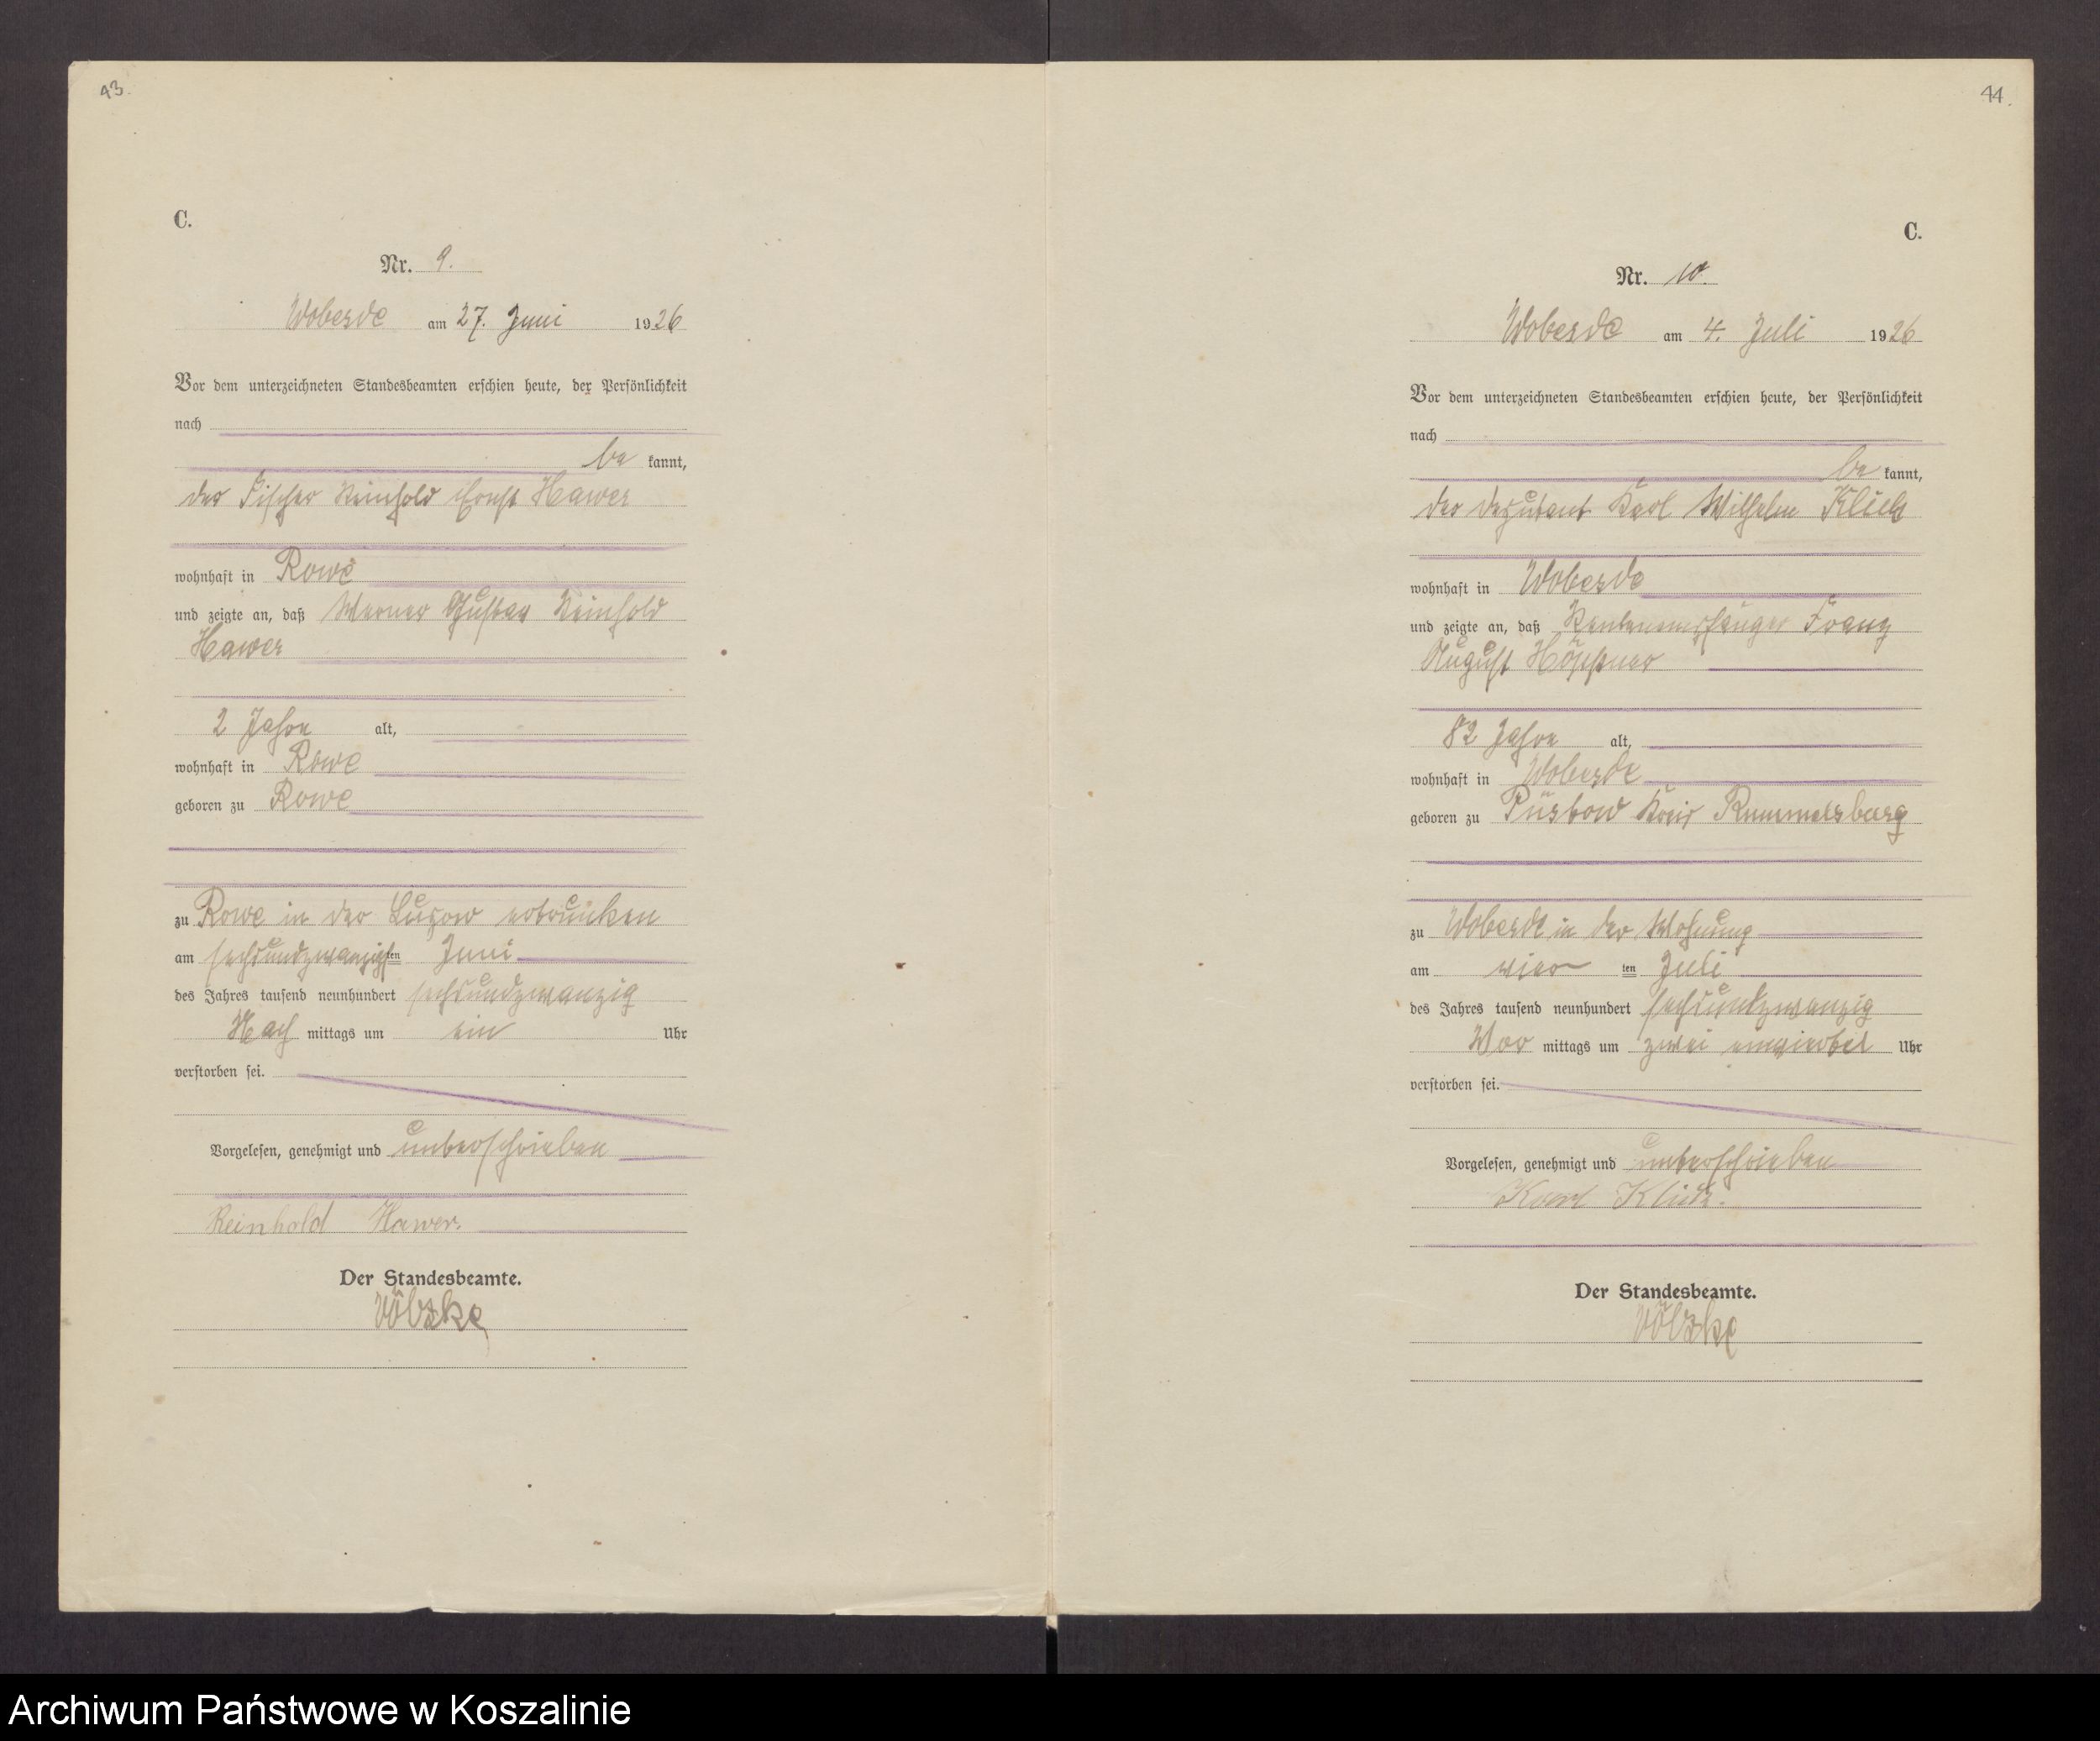 43.
C.
Nr. 9.
Wobesde am 27. Juni 1926
Vor dem unterzeichneten Standesbeamten erschien heute, der Persönlichkeit
nach
be kannt,
der Fischer Reinhold Ernst Hawer
wohnhaft in Rowe
und zeigte an, daß Werner Gustav Reinhold
Hawer
2 Jahre alt,
wohnhaft in Rowe
geboren zu Rowe
zu Rowe in der Lupow ertrunken
am sechsundzwanzigsten Juni
des Jahres tausend neunhundert sechsundzwanzig
Nach mittags um ein Uhr
verstorben sei.
Vorgelesen, genehmigt und unterschrieben
Reinhold Hawer.
Der Standesbeamte.
Völzke
44.
C.
Nr. 10.
Wobesde am 4. Juli 1926
Vor dem unterzeichneten Standesbeamten erschien heute, der Persönlichkeit
nach
be kannt,
der Deputant Karl Wilhelm
wohnhaft in Wobesde
und zeigte an, daß Rentenempfänger Franz
August Höppner
82 Jahre alt,
wohnhaft in Wobesde
geboren zu Püstow Kreis Rummelsburg
zu Wobesde in der Wohnung
am vier ten Juli
des Jahres tausend neunhundert sechsundzwanzig
Vor mittags um zwei einviertel Uhr
verstorben sei.
Vorgelesen, genehmigt und unterschrieben
Karl
Der Standesbeamte.
Völzke
Archiwum Państwowe w Koszalinie